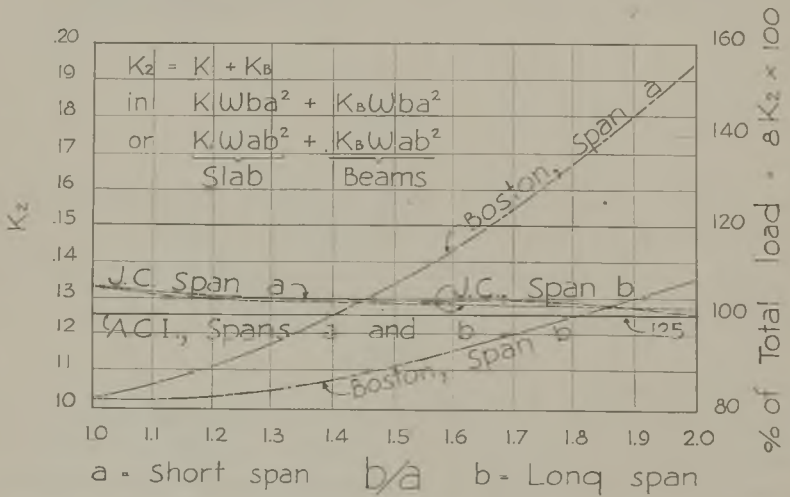 .20
.19
.18
.17
.16
.15
.14
.13
.12
.11
.10
K₂
K₂ = K + KB
in KWba² + KBWba²
or KWab² + KBWab²
Slab Beams
Boston, Span a
J.C. Span a
J.C., Span b
A.C.I., Spans a and b
.125
Boston, Span b
160
140
120
100
80
% of Total load = 8K₂ x 100
1.0 1.1 1.2 1.3 1.4 1.5 1.6 1.7 1.8 1.9 2.0
a = Short span b/a b = Long span